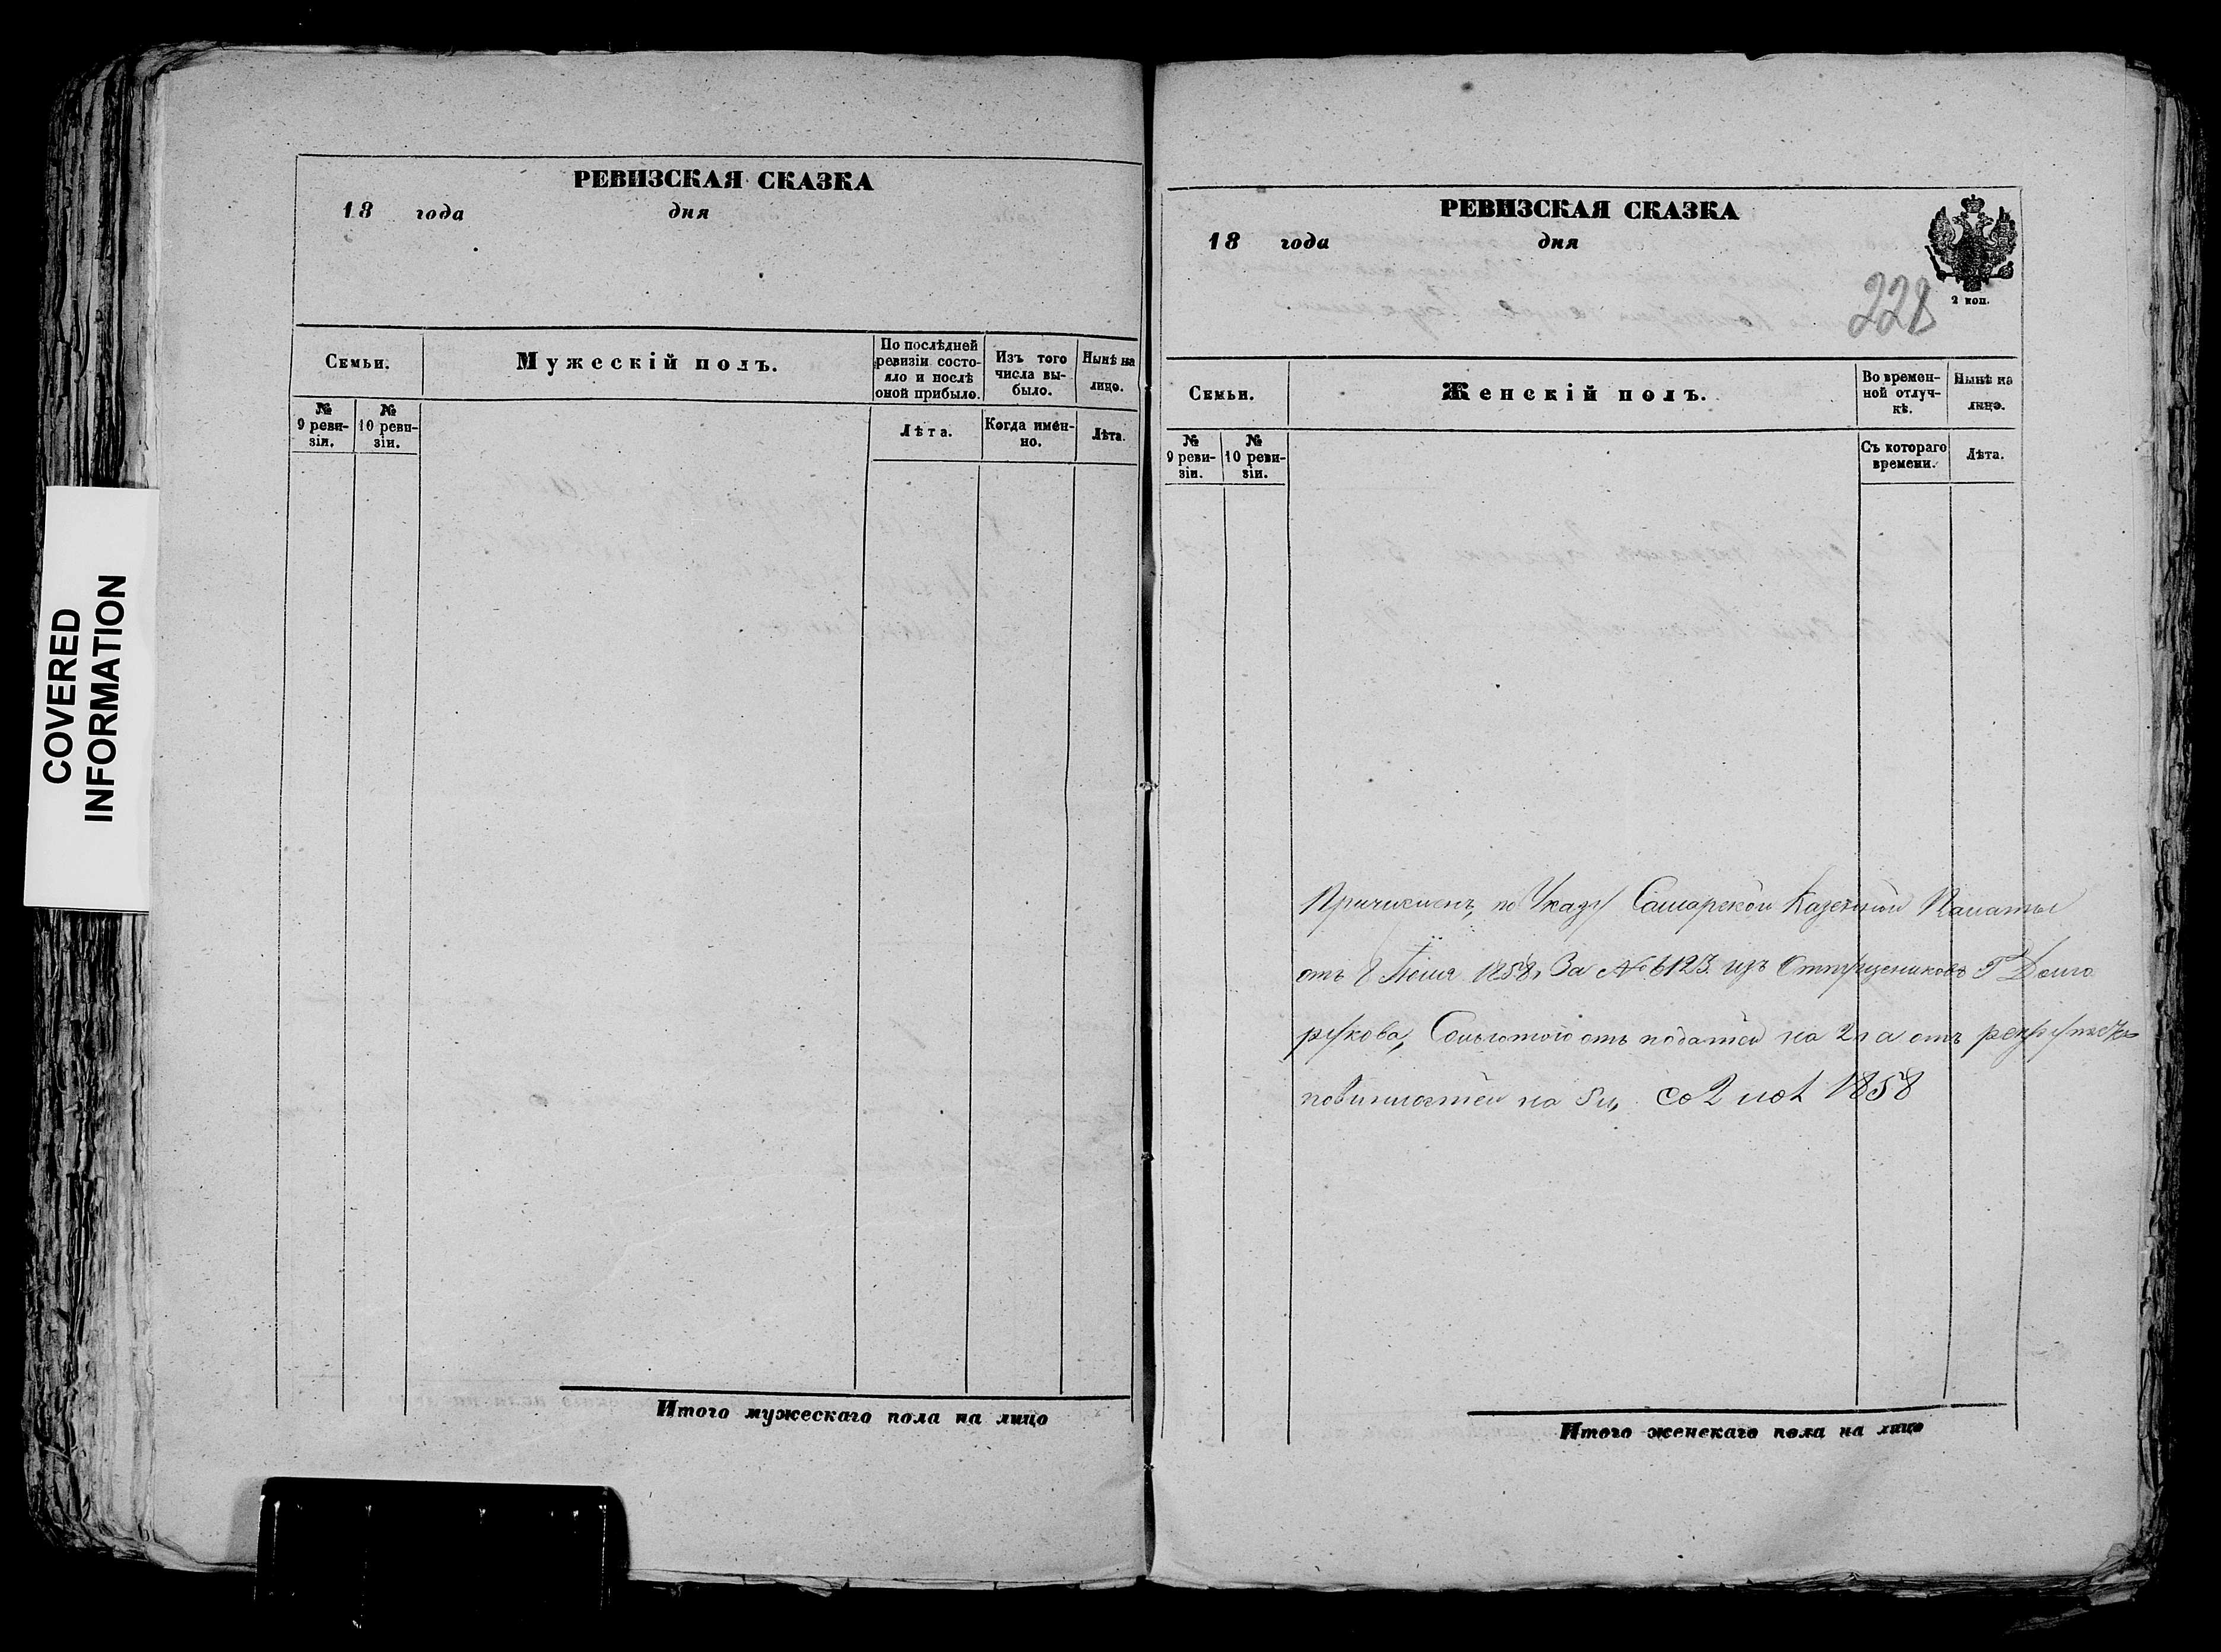 РЕВИЗСКАЯ СКАЗКА
18 года дня
Семьи.
Мужескій полъ.
По послѣдней
ревизіи состо-
яло и послѣ
оной прибыло.
Изъ того
числа вы-
было.
Нынѣ на
лицо.
№
9 реви-
зіи.
№
10 реви-
зіи.
Лѣта.
Когда имен-
но.
Лѣта.
Итого мужескаго пола на лицо
COVERED
INFORMATION
РЕВИЗСКАЯ СКАЗКА
18 года дня
2 коп.
228
Семьи.
Женскій полъ.
Во времен-
ной отлуч-
кѣ.
Нынѣ на
лицо.
№
9 реви-
зіи.
№
10 реви-
зіи.
Съ котораго
времени.
Лѣта.
Причисленъ, по Указу Самарской Казенной Палаты
отъ 8 1858, За № 6123. изъ Отпущениковъ Г Долго
рукова, Сольготою отъ податей на 2 л а отъ
повинностей на 5 л, со 2 1858
Итого женскаго пола на лицо